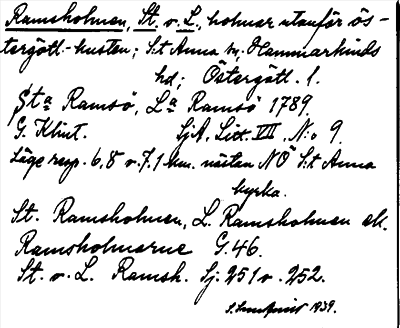 Ramsholmen, St. o. L., holmar utanför ös-
tergötl-kusten; S:t Anna sn, Hammarkinds
hd; Östergötl. l.
Sta Ramsö, La Ramsö 1789.
G. Klint. SjA, Litt. VII, No 9.
Läge resp. 6,8 o. 7,1 km. nästan NÖ S:t Anna
kyrka.
St. Ramsholmen, L. Ramsholmen el.
Ramsholmarne G. 46.
St. o. L. Ramsh. Sj. 251 o. 252.
1939.